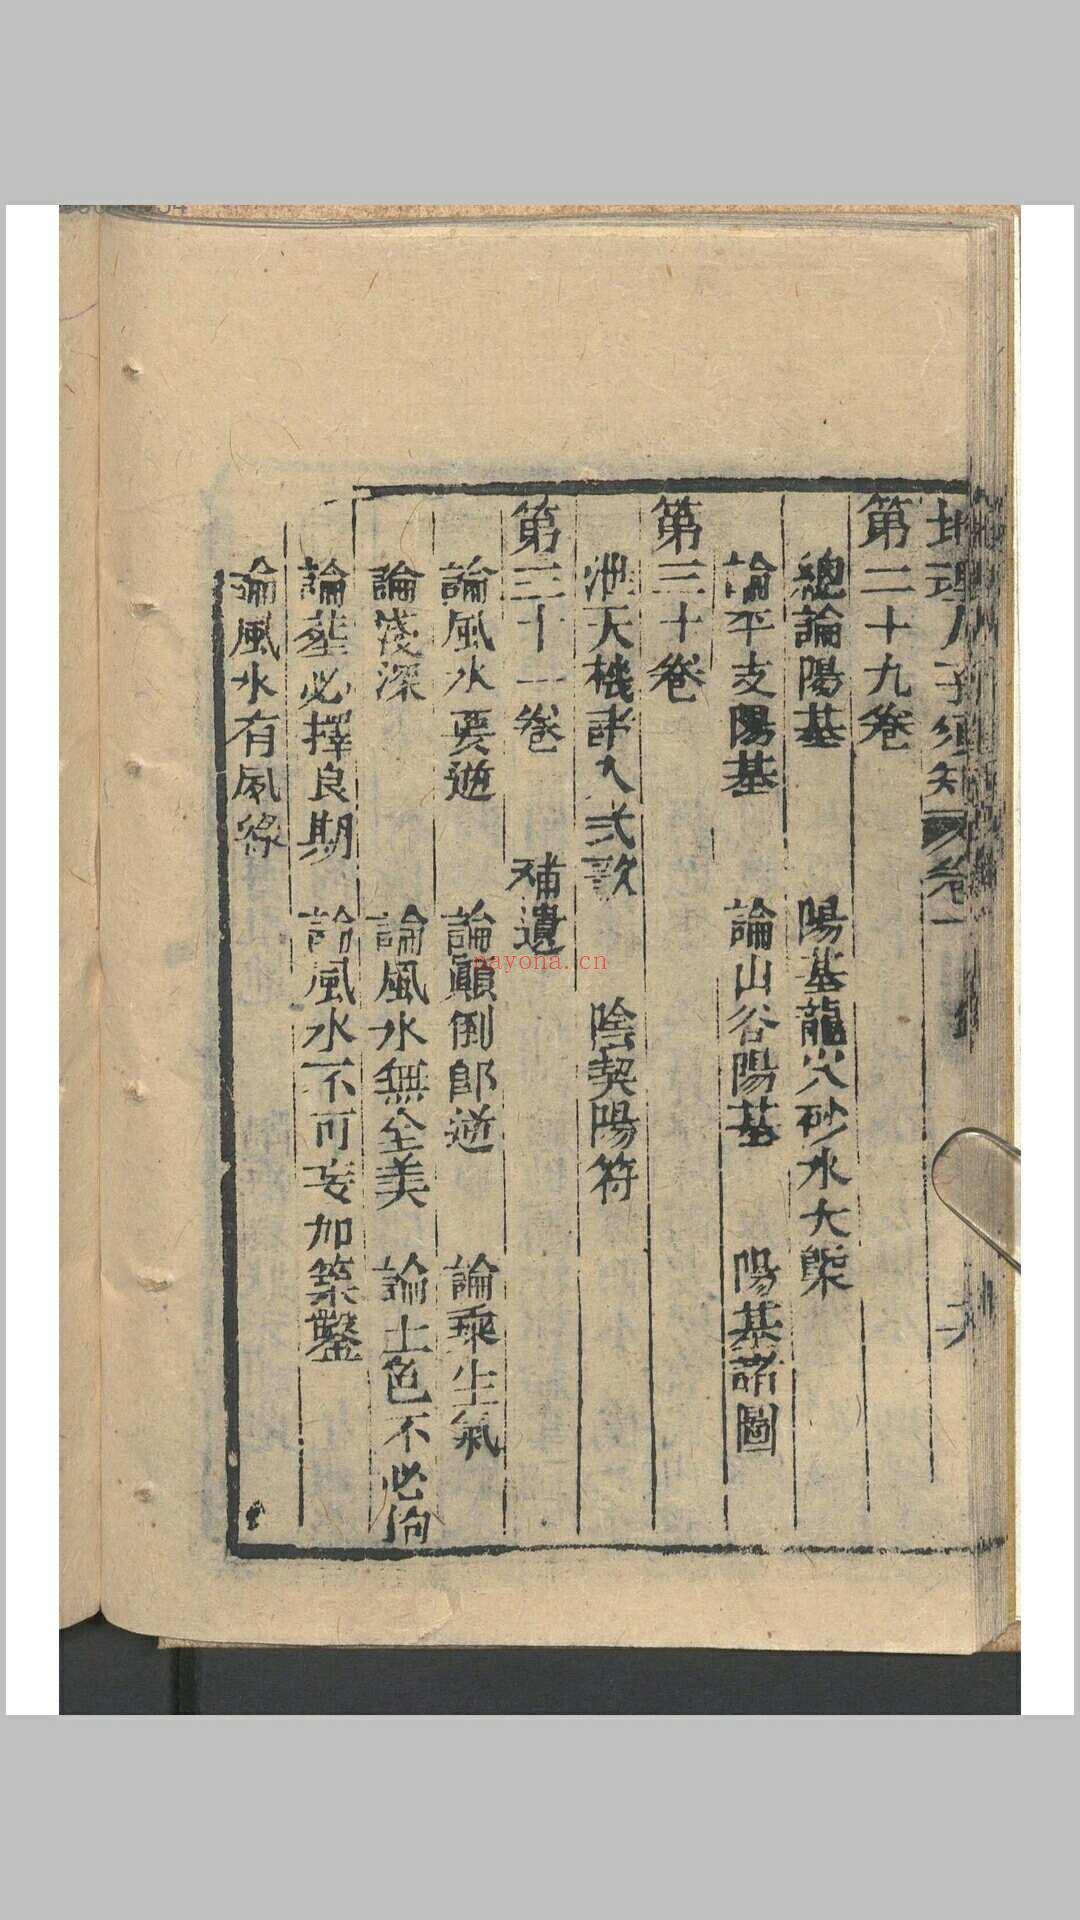 地理人子須知 卷一
第二十九卷
總論陽基 陽基龍穴砂水大槩
論平支陽基 論山谷陽基 陽基諸圖
第三十卷
泄天機諸入式歌 陰契陽符
第三十一卷 補遺
論風水要逆 論顛倒郎逆 論乘生氣
論淺深 論風水無全美 論土色不必拘
論塟必擇良期 論風水不可妄加築鑿
論風水有夙緣
payona.cn